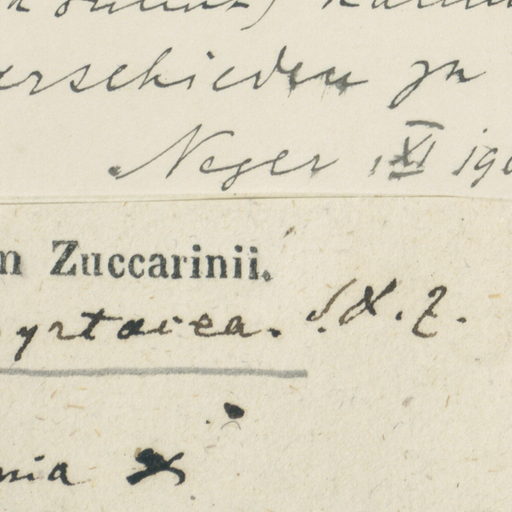 verschieden zu
Neger XI 190
m Zuccarinii.
yrtacea. S. & Z.
nia